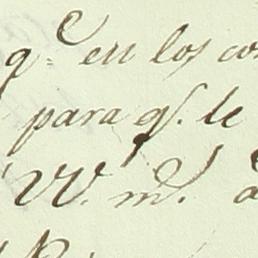 q.e en los co
para q.e le
VV. md. a